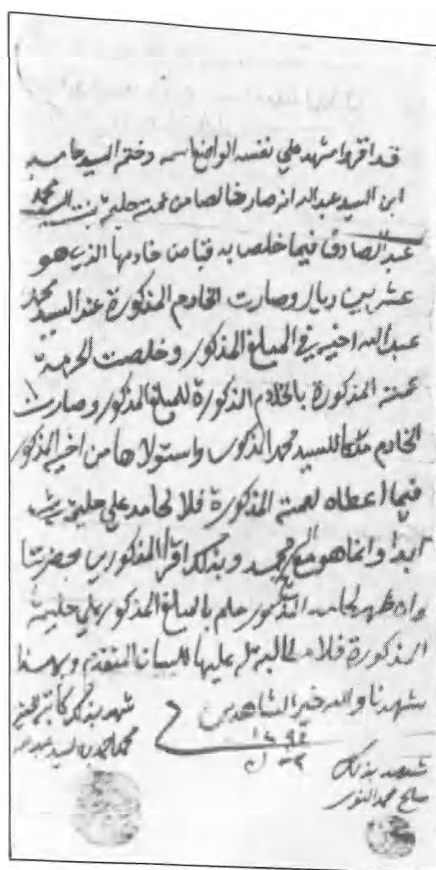 قد اقر واشهد علي نفسه الواضع اسمه وختمه السيد حامد
ابن السيد عبدالله انه صار خالصا من عمته حليمة بنت السيد محمد
عبدالصادق فيما خلص به من خادمها الذي هو
عشرين ريال وصارت الخادم المذكورة عند السيد محمد
عبدالله اخيه في المبلغ المذكور وخلصت الحرمة
عمته المذكورة بالخادم المذكورة للمبلغ المذكور وصارت
الخادم للسيد محمد المذكور واستولاها من اخيه المذكور
فيما اعطاه لعمته المذكورة فلا لحامد علي حليمة شيء
ابدا وانما هو مع محمد وبذلك اقر المذكورين بحضرتنا
وان ظهر لحامد المذكور علم بالمبلغ المذكور علي حليمة
المذكورة فلا مطالبة له عليها للبيان المتقدم وبهذا
شهدنا والله خير الشاهدين
شهد بذلك كاتبه
محمد احمد بن السيد
شهد بذلك
صالح محمد